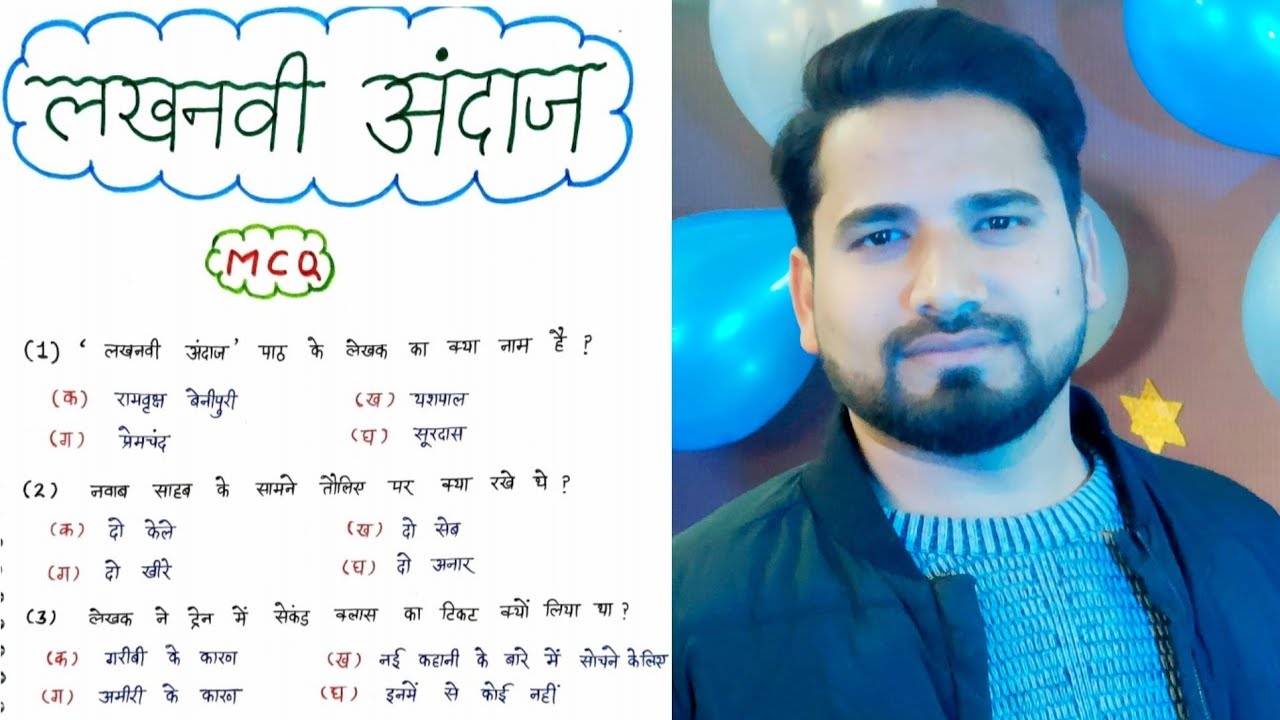 लखनवी अंदाज
MCQ
(1) ' लखनवी अंदाज' पाठ के लेखक का क्या नाम है ?
(क) रामवृक्ष बेनीपुरी (ख) यशपाल
(ग) प्रेमचंद (घ) सूरदास
(2) नवाब साहब के सामने तौलिए पर क्या रखे थे ?
(क) दो केले (ख) दो सेब
(ग) दो खीरे (घ) दो अनार
(3) लेखक ने ट्रेन में सेकंड क्लास का टिकट क्यों लिया था ?
(क) गरीबी के कारण (ख) नई कहानी के बारे में सोचने के लिए
(ग) अमीरी के कारण (घ) इनमें से कोई नहीं